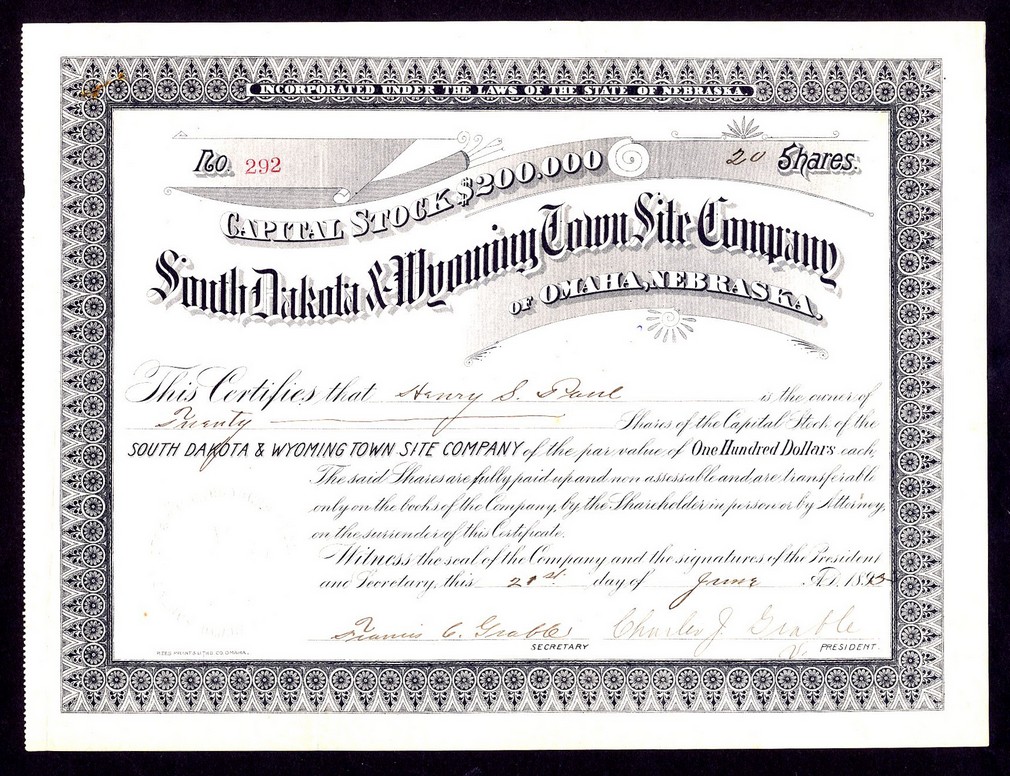 INCORPORATED UNDER THE LAWS OF THE STATE OF NEBRASKA.
No. 292
20 Shares.
CAPITAL STOCK $200.000
South Dakota & Wyoming Town Site Company
OF OMAHA, NEBRASKA.
This Certifies that Henry S. Paul is the owner of
Twenty Shares of the Capital Stock of the
SOUTH DAKOTA & WYOMING TOWN SITE COMPANY of the par value of One Hundred Dollars each,
The said Shares are fully paid up and non assessable and are transferable
only on the books of the Company, by the Shareholder in person or by Attorney,
on the surrender of this Certificate.
Witness the seal of the Company and the signatures of the President
and Secretary, this 21st day of June A.D. 18
Francis C. Grable Charles J. Grable
SECRETARY PRESIDENT.
CO. OMAHA.